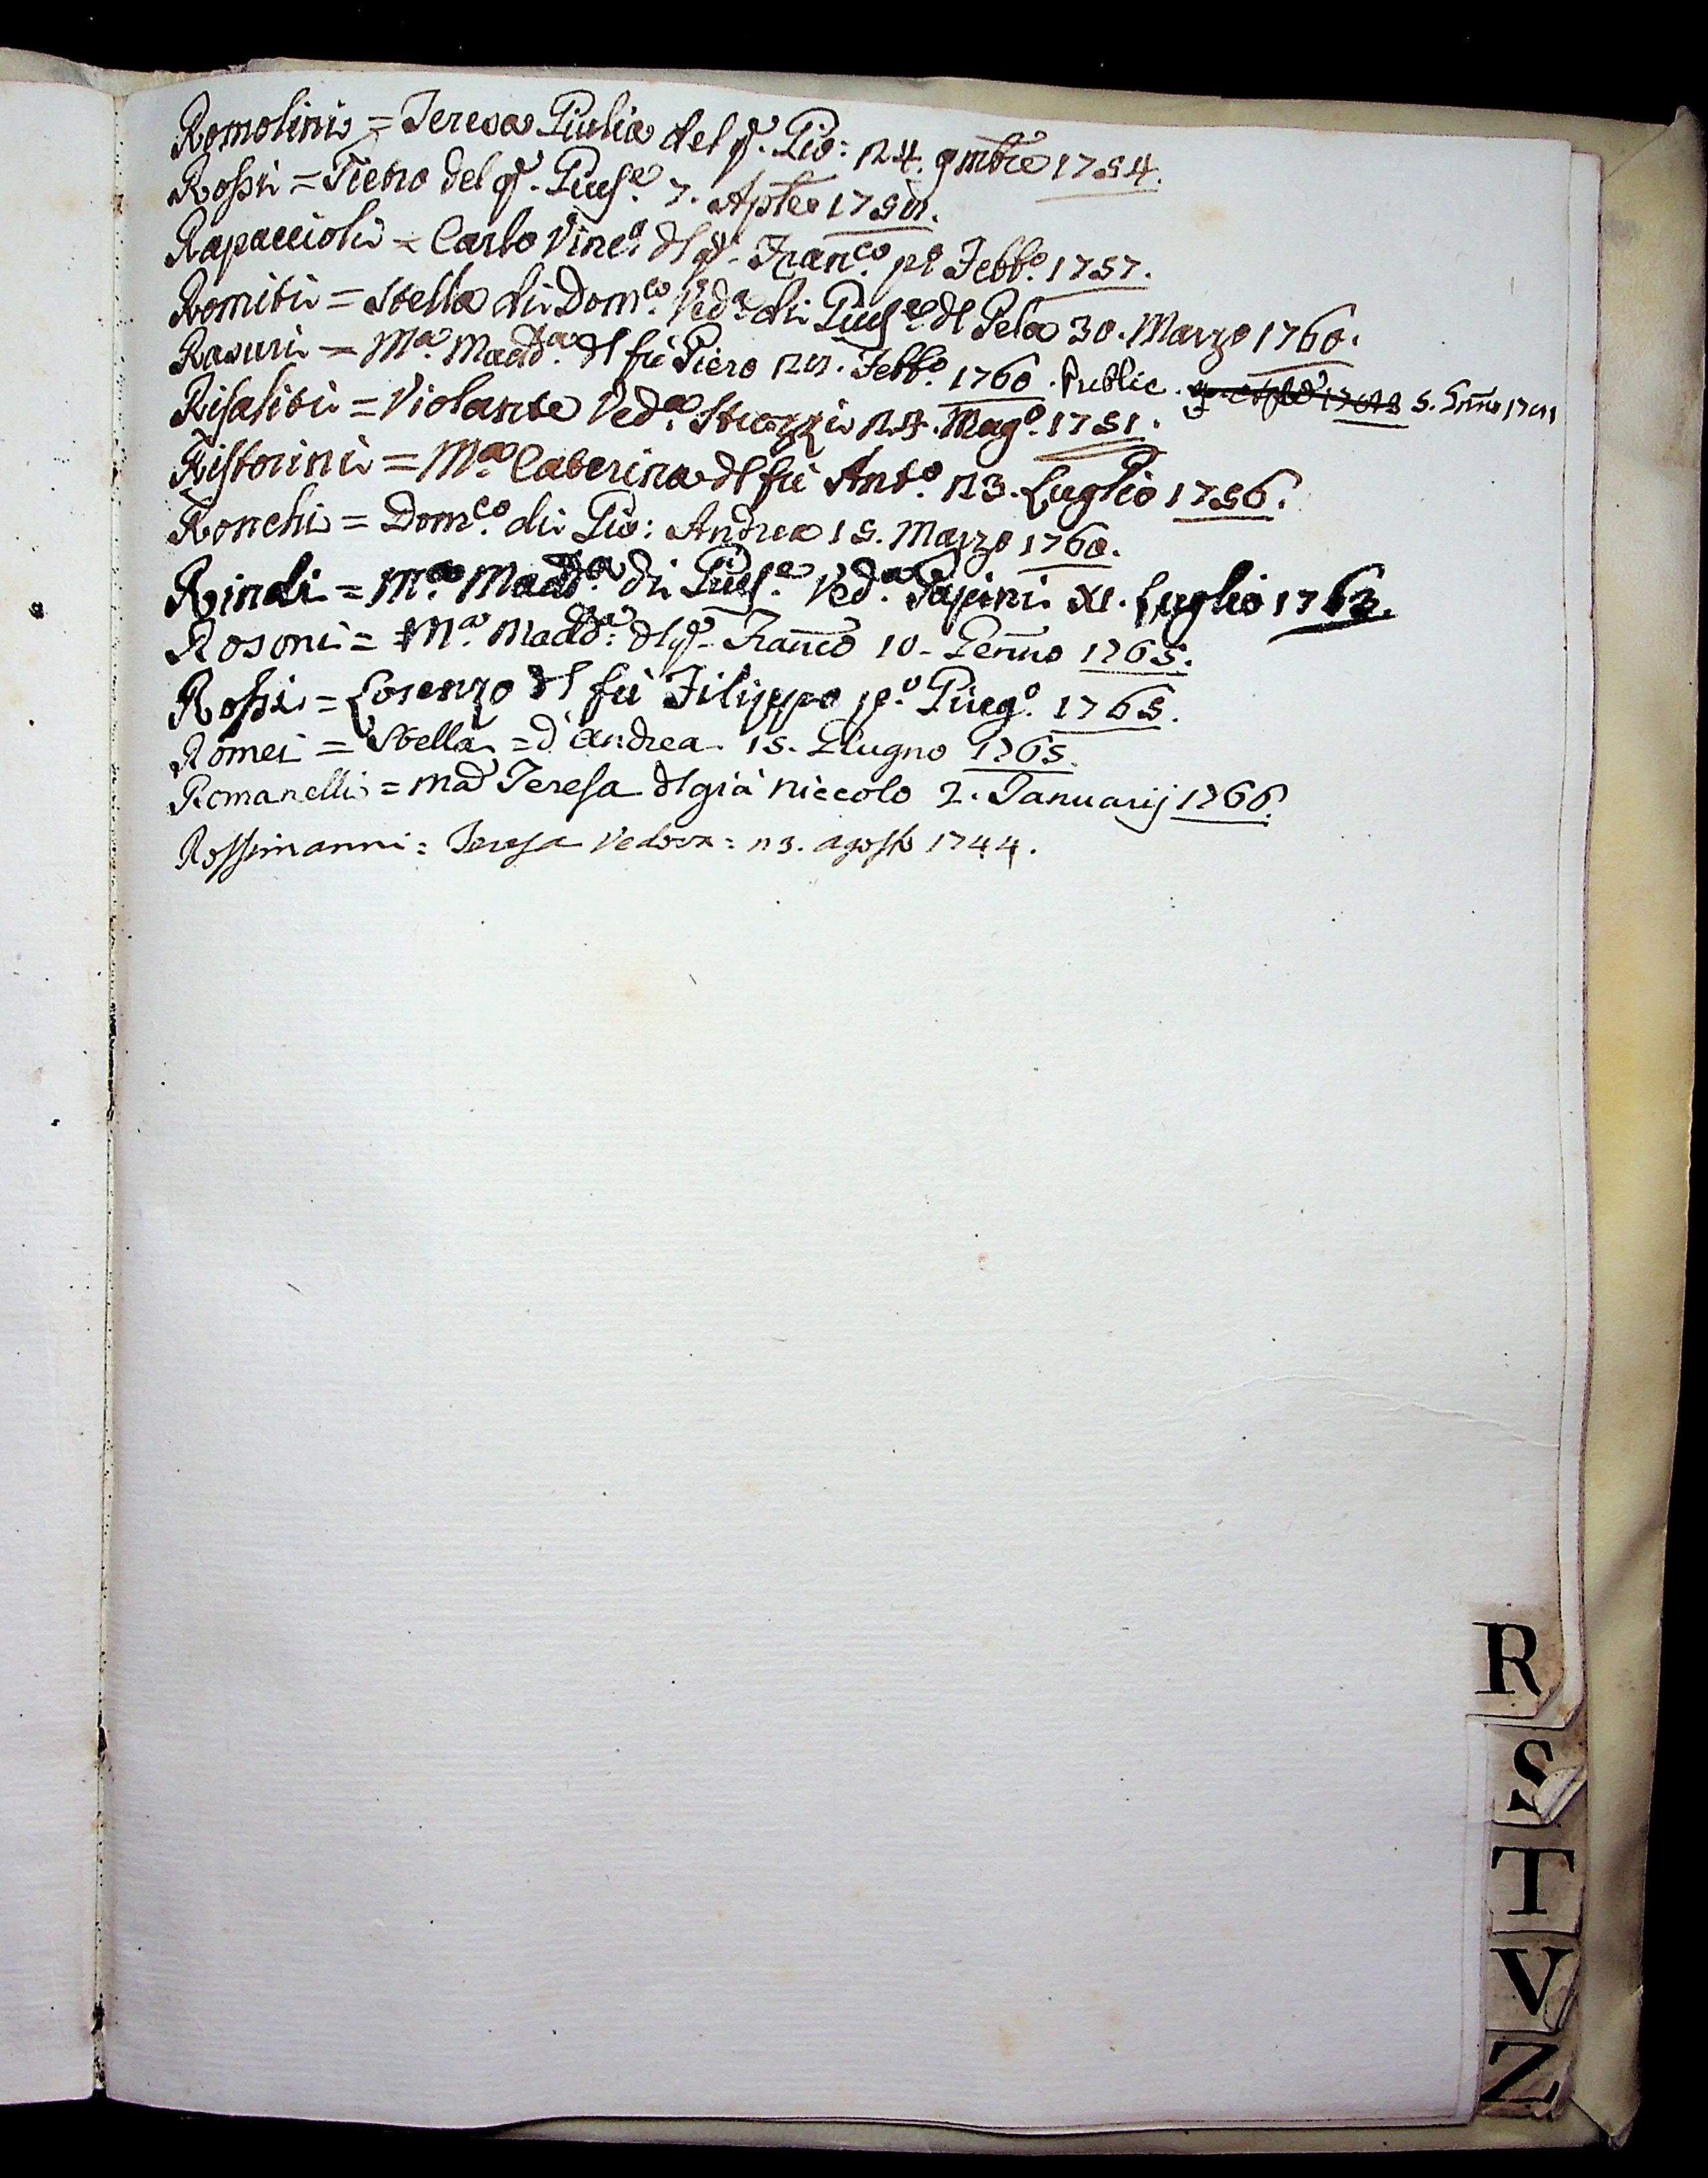 Romolini = Teresa Giulia del q. Gio: 24. 9mbre 1754.
Rossi = Pietro del q. Gius.e 7. Aple
Rapaccioli = Carlo Vinc.o del q. Fran.co p.o Febb.o 1757.
Romiti = Stella di Dom.co Ved.a di Gius.e del Gela 30. Marzo 1760.
Rasuri = M.a Madd.a del fù Piero Febb.o 1760. Public. 5. 1761
Risaliti = Violante Ved.a Strozzi 24. Mag.o 1751.
Ristorini = M.a Caterina del fù Ant.o 23. Luglio 1756.
Ronchi = Dom.co di Gio: Andrea 15. Marzo 1760.
Rindi = M.a Madd.a di Gius.e Ved.a Papini XI. Luglio 1763.
Rosoni = M.a Madd.a del q. Franco 10. Genno 1765.
Rossi = Lorenzo del fù Filippo p.o Giug.o 1765.
Romei = Stella = d'Andrea. 15. Giugno 1765.
Romanelli = Ma Teresa del già Niccolo 2. Januarij 1766.
Rossimanni = Teresa Vedova = 23. agosto 1744.
R
S
T
V
Z